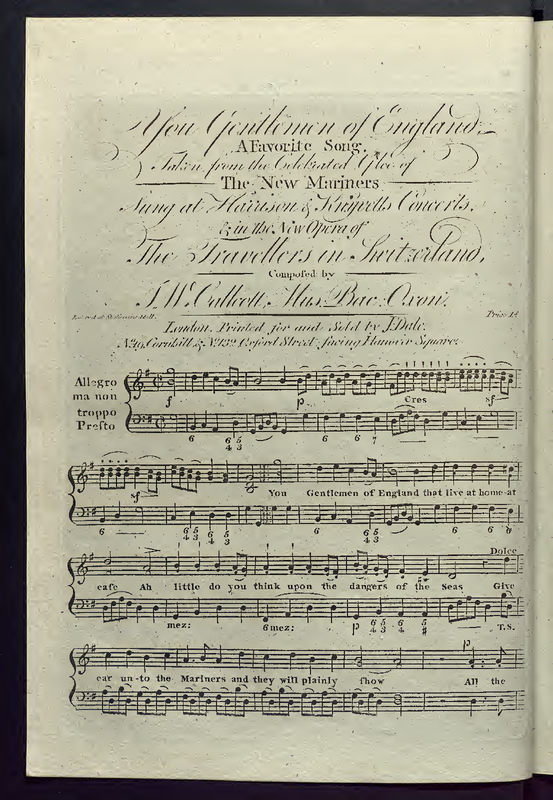 You Gentlemen of England,
A Favorite Song,
Taken from the Celebrated Glee of
The New Mariners
Sung at Harrison & Knyvetts Concerts,
& in the New Opera of
The Travellers in Switzerland,
Compofed by
J. W. Callcott, Mus. Bac. Oxon.
Entered at Stationers Hall. Price 1s
London, Printed for and Sold by J. Dale,
No. 19, Cornhill & No. 132 Oxford Street, facing Hanover Square.
Allegro
ma non
troppo
Prefto
f p Cres sf
6 6 5 6 6 7
4 3
sf
You Gentlemen of England that live at home at
6 6 5 6 5 6 6 5 6 6 6
4 3 4 3 4 3
Dolce
eafe Ah little do you think upon the dangers of the Seas Give
mez: 6 mez: p 6 5 6 5 T.S.
4 3 4 #
p
ear un-to the Mariners and they will plainly fhow All the